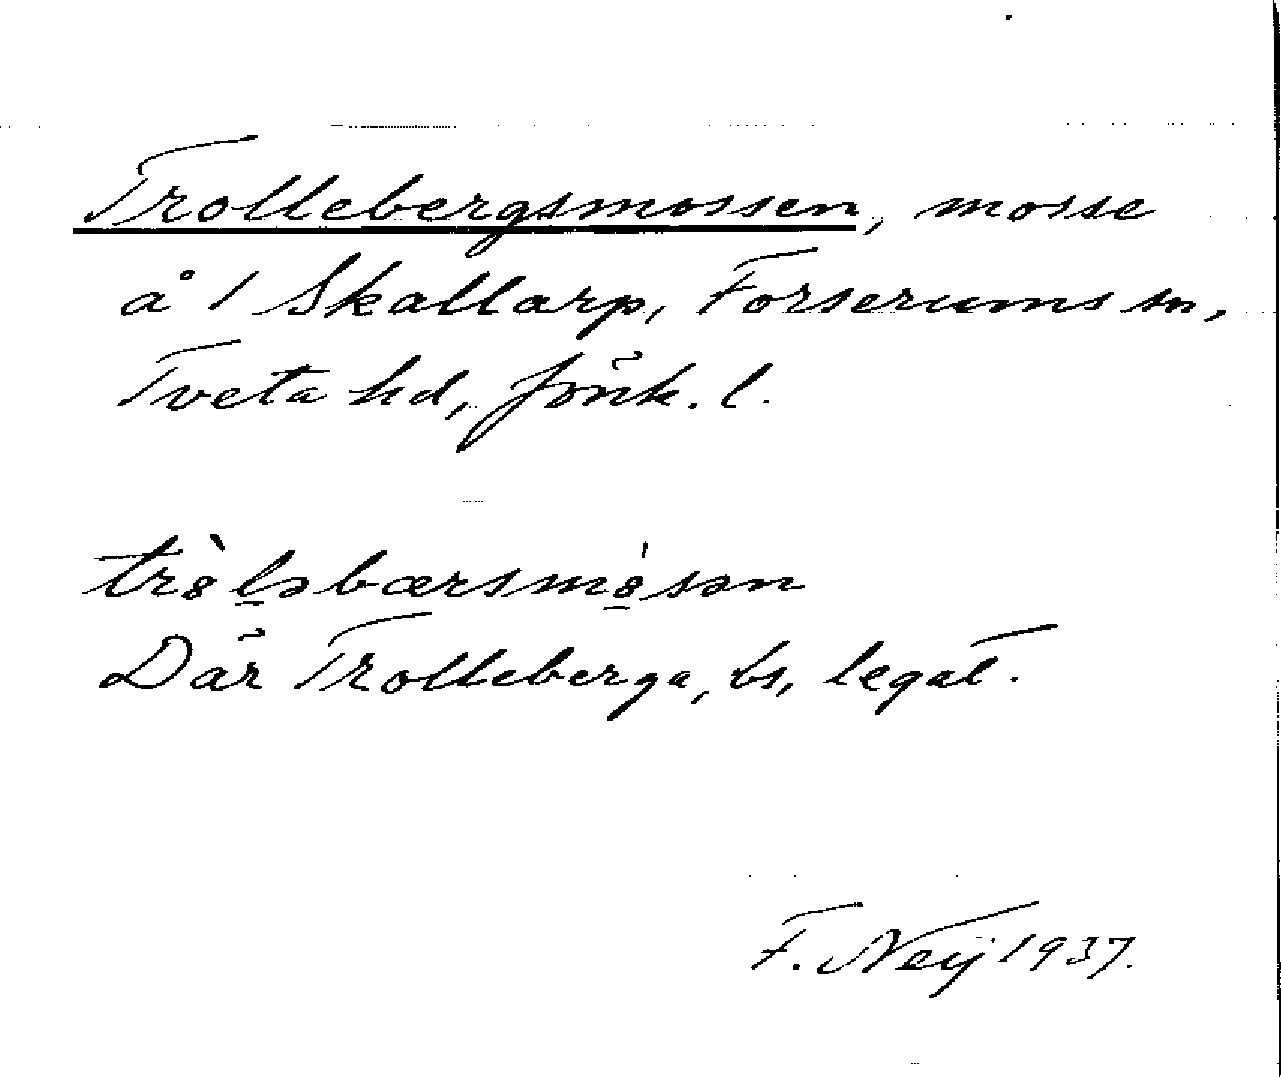 Trollebergsmossen, mosse
å 1 Skallarp, Forserums sn,
Tveta hd, Jönk. l.
trò̤l̠əbærsmò̠sən
Där Trolleberga, bs, legat.
F. Neij 1937.